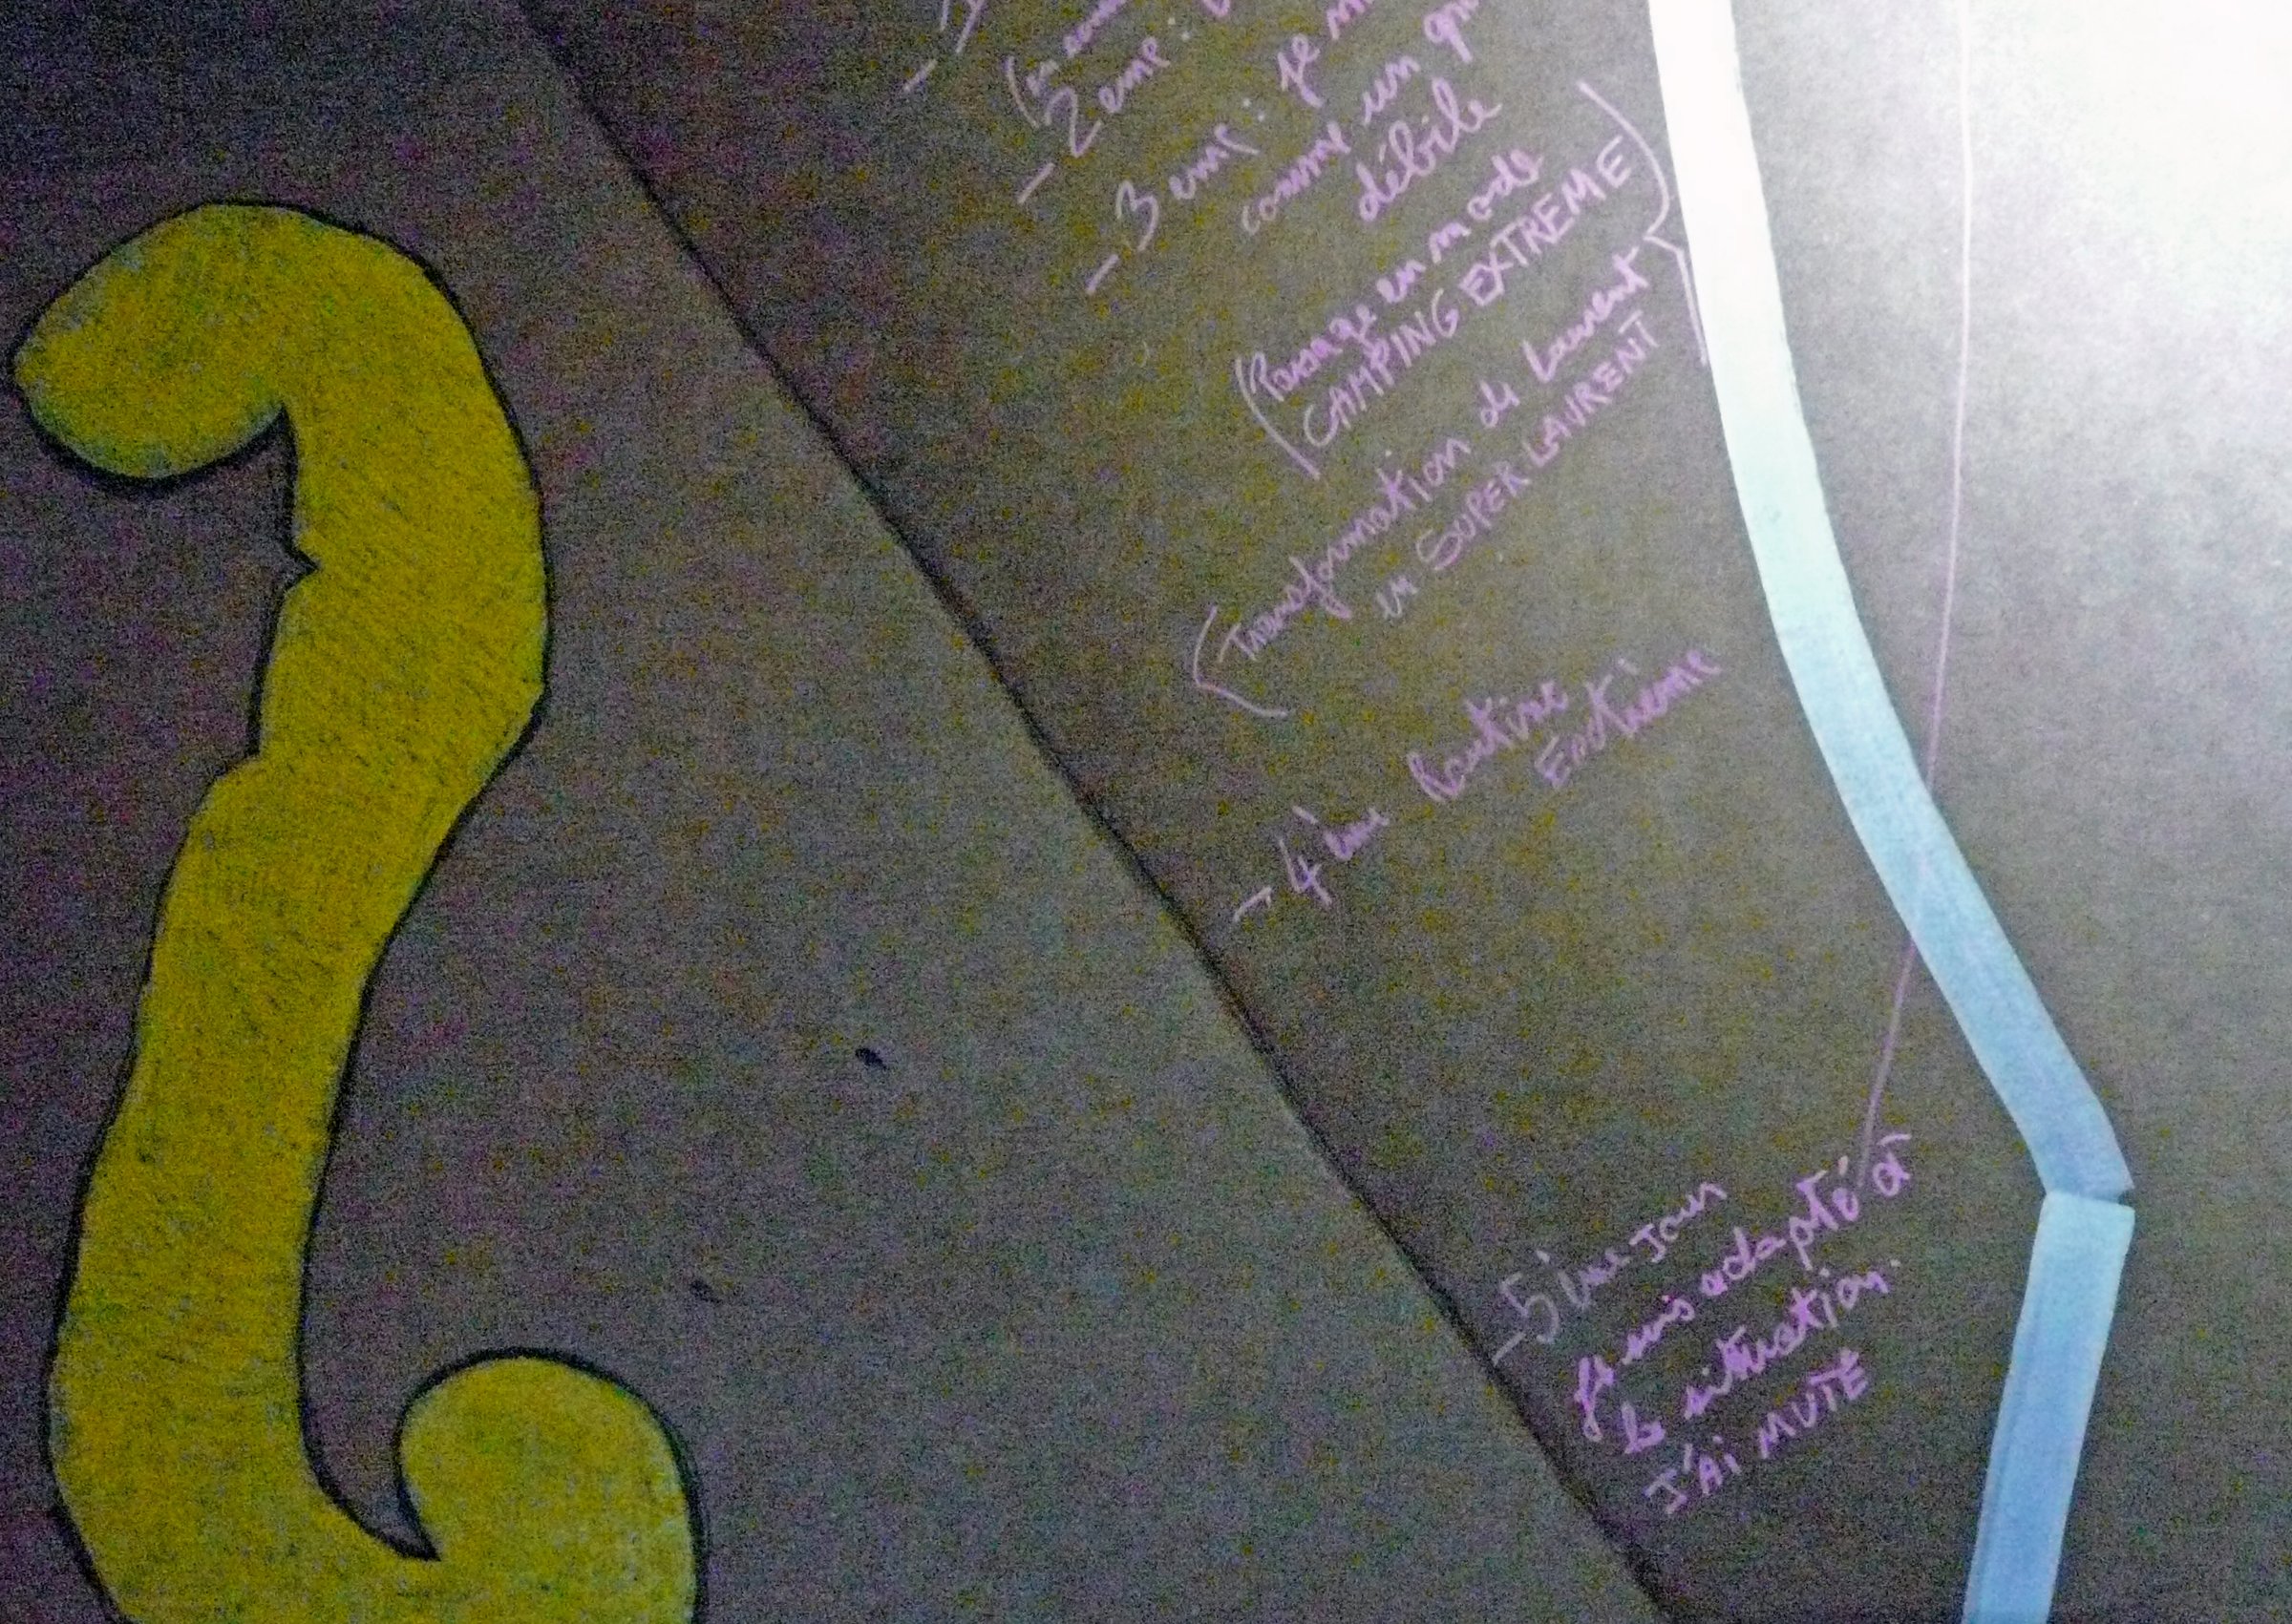 - 2 eme :
- 3 eme : je
comme un
débile
(Passage en mode
CAMPING EXTREME)
(Transformation de Laurent
en SUPER LAURENT
- 4 ème Routine
Extrême
- 5 ème JOUR
Je suis adapté à
la situation.
J'Ai MUTÉ